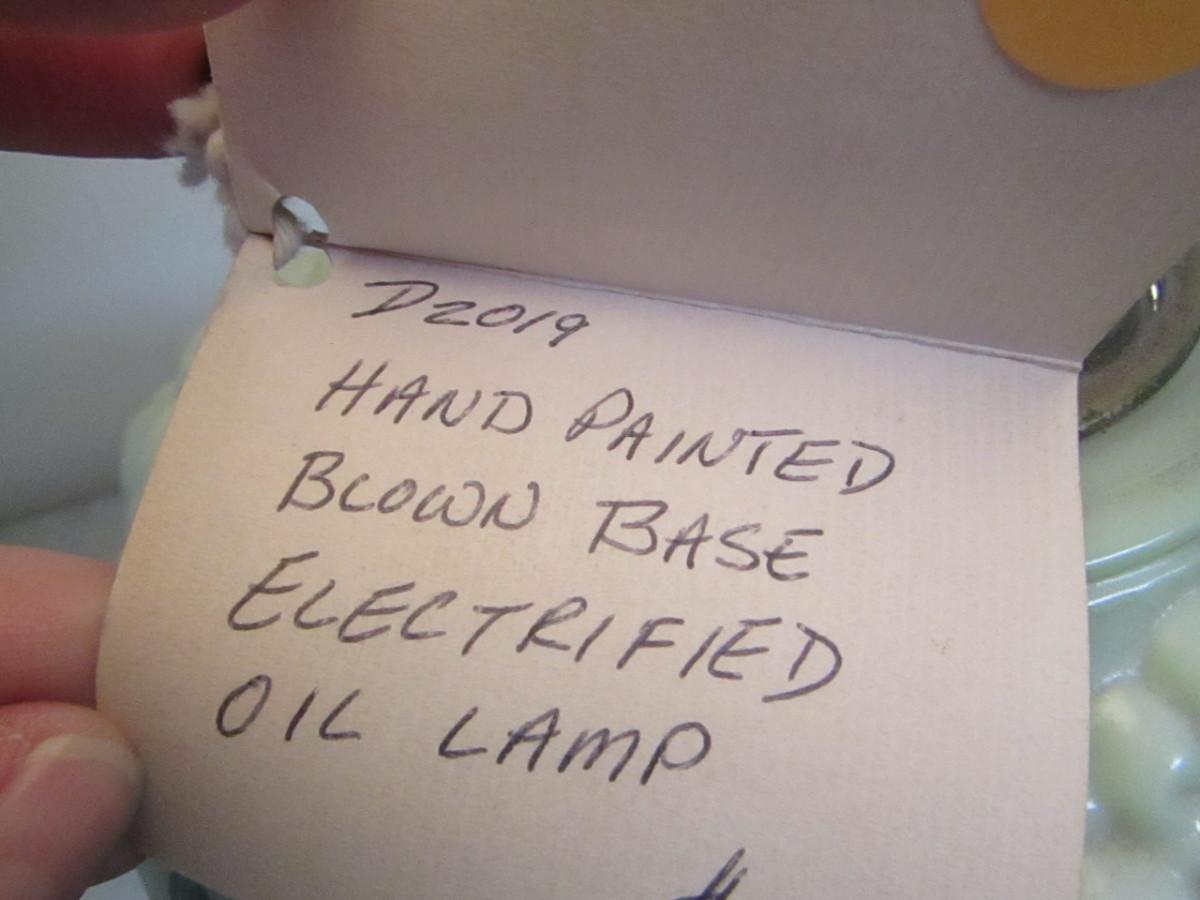 D2019
HAND PAINTED
BLOWN BASE
ELECTRIFIED
OIL LAMP